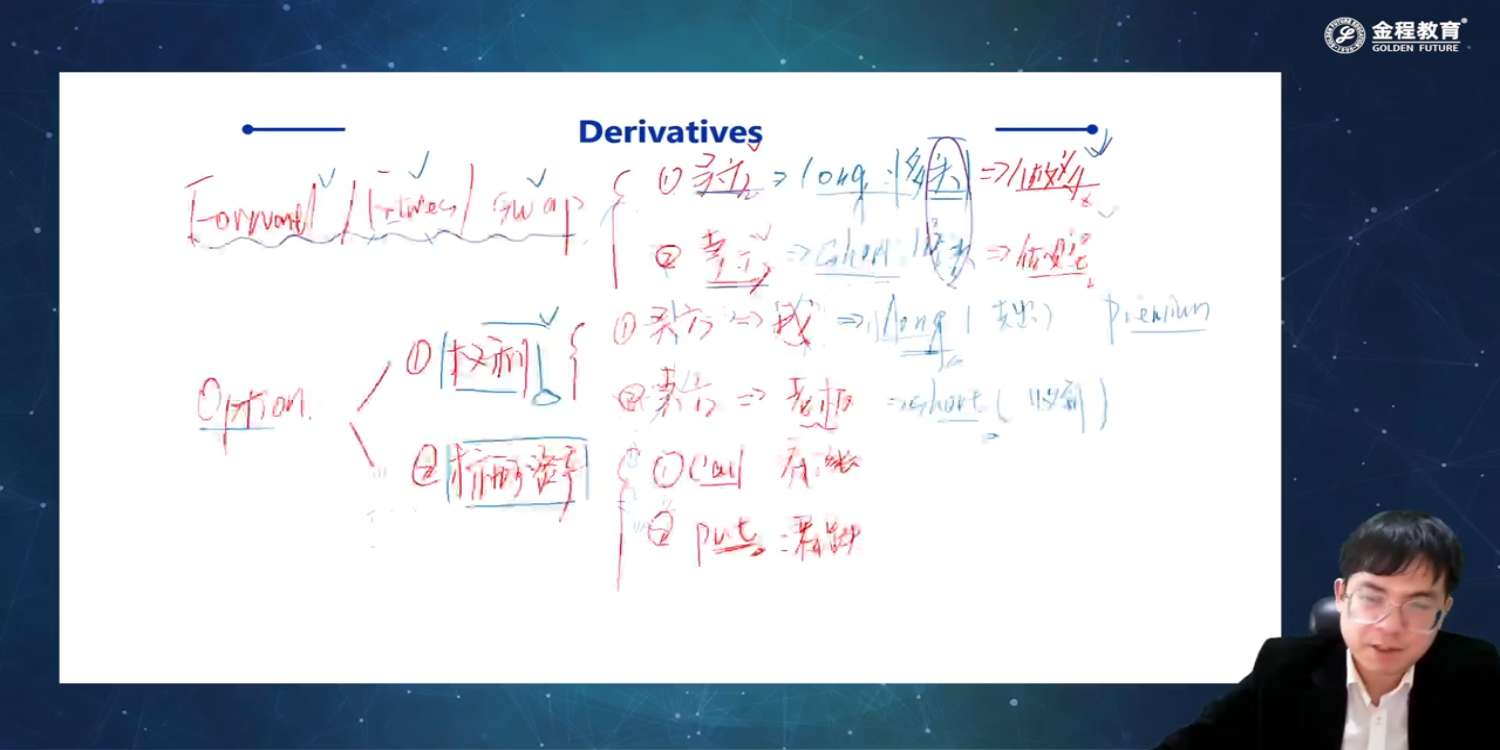 金程教育
GOLDEN FUTURE
Derivatives
Forward / Futures / swap
① 买方 => long : 多头 => 做多
② 卖方 => short : 空头 => 做空
Option
① 权利
① 买方 => => long (支出) premium
② 卖方 => => short (收到)
②
① Call 看涨
② put : 看跌